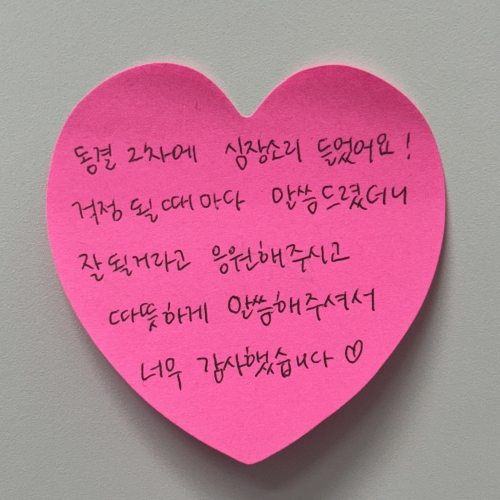 동결 2차에 심장소리 들었어요!
걱정 될 때마다 말씀드렸더니
잘 될거라고 응원해주시고
따뜻하게 말씀해주셔서
너무 감사했습니다 ♡